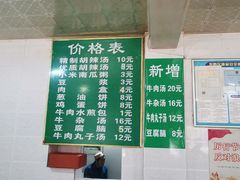 价格表
精制胡辣汤 10元
优质胡辣汤 8元
小米南瓜粥 3元
豆浆 3元
肉盒 4元
葱油饼 8元
鸡蛋饼 8元
牛肉水煎包 1元
牛杂汤 16元
豆腐脑 5元
牛肉丸子汤 12元
新增
牛肉汤 20元
牛杂汤 16元
牛肉丸子汤 12元
豆腐脑 8元